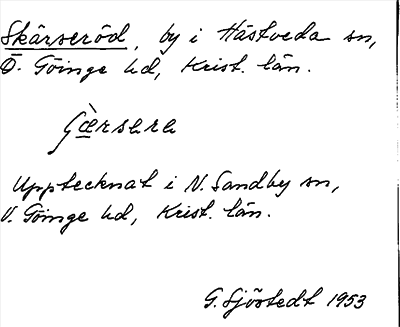 Skärseröd, by i Hästveda sn,
Ö. Göinge hd, Krist. län.
Upptecknat i N. Sandby sn,
V. Göinge hd, Krist. län.
G. Sjöstedt 1953